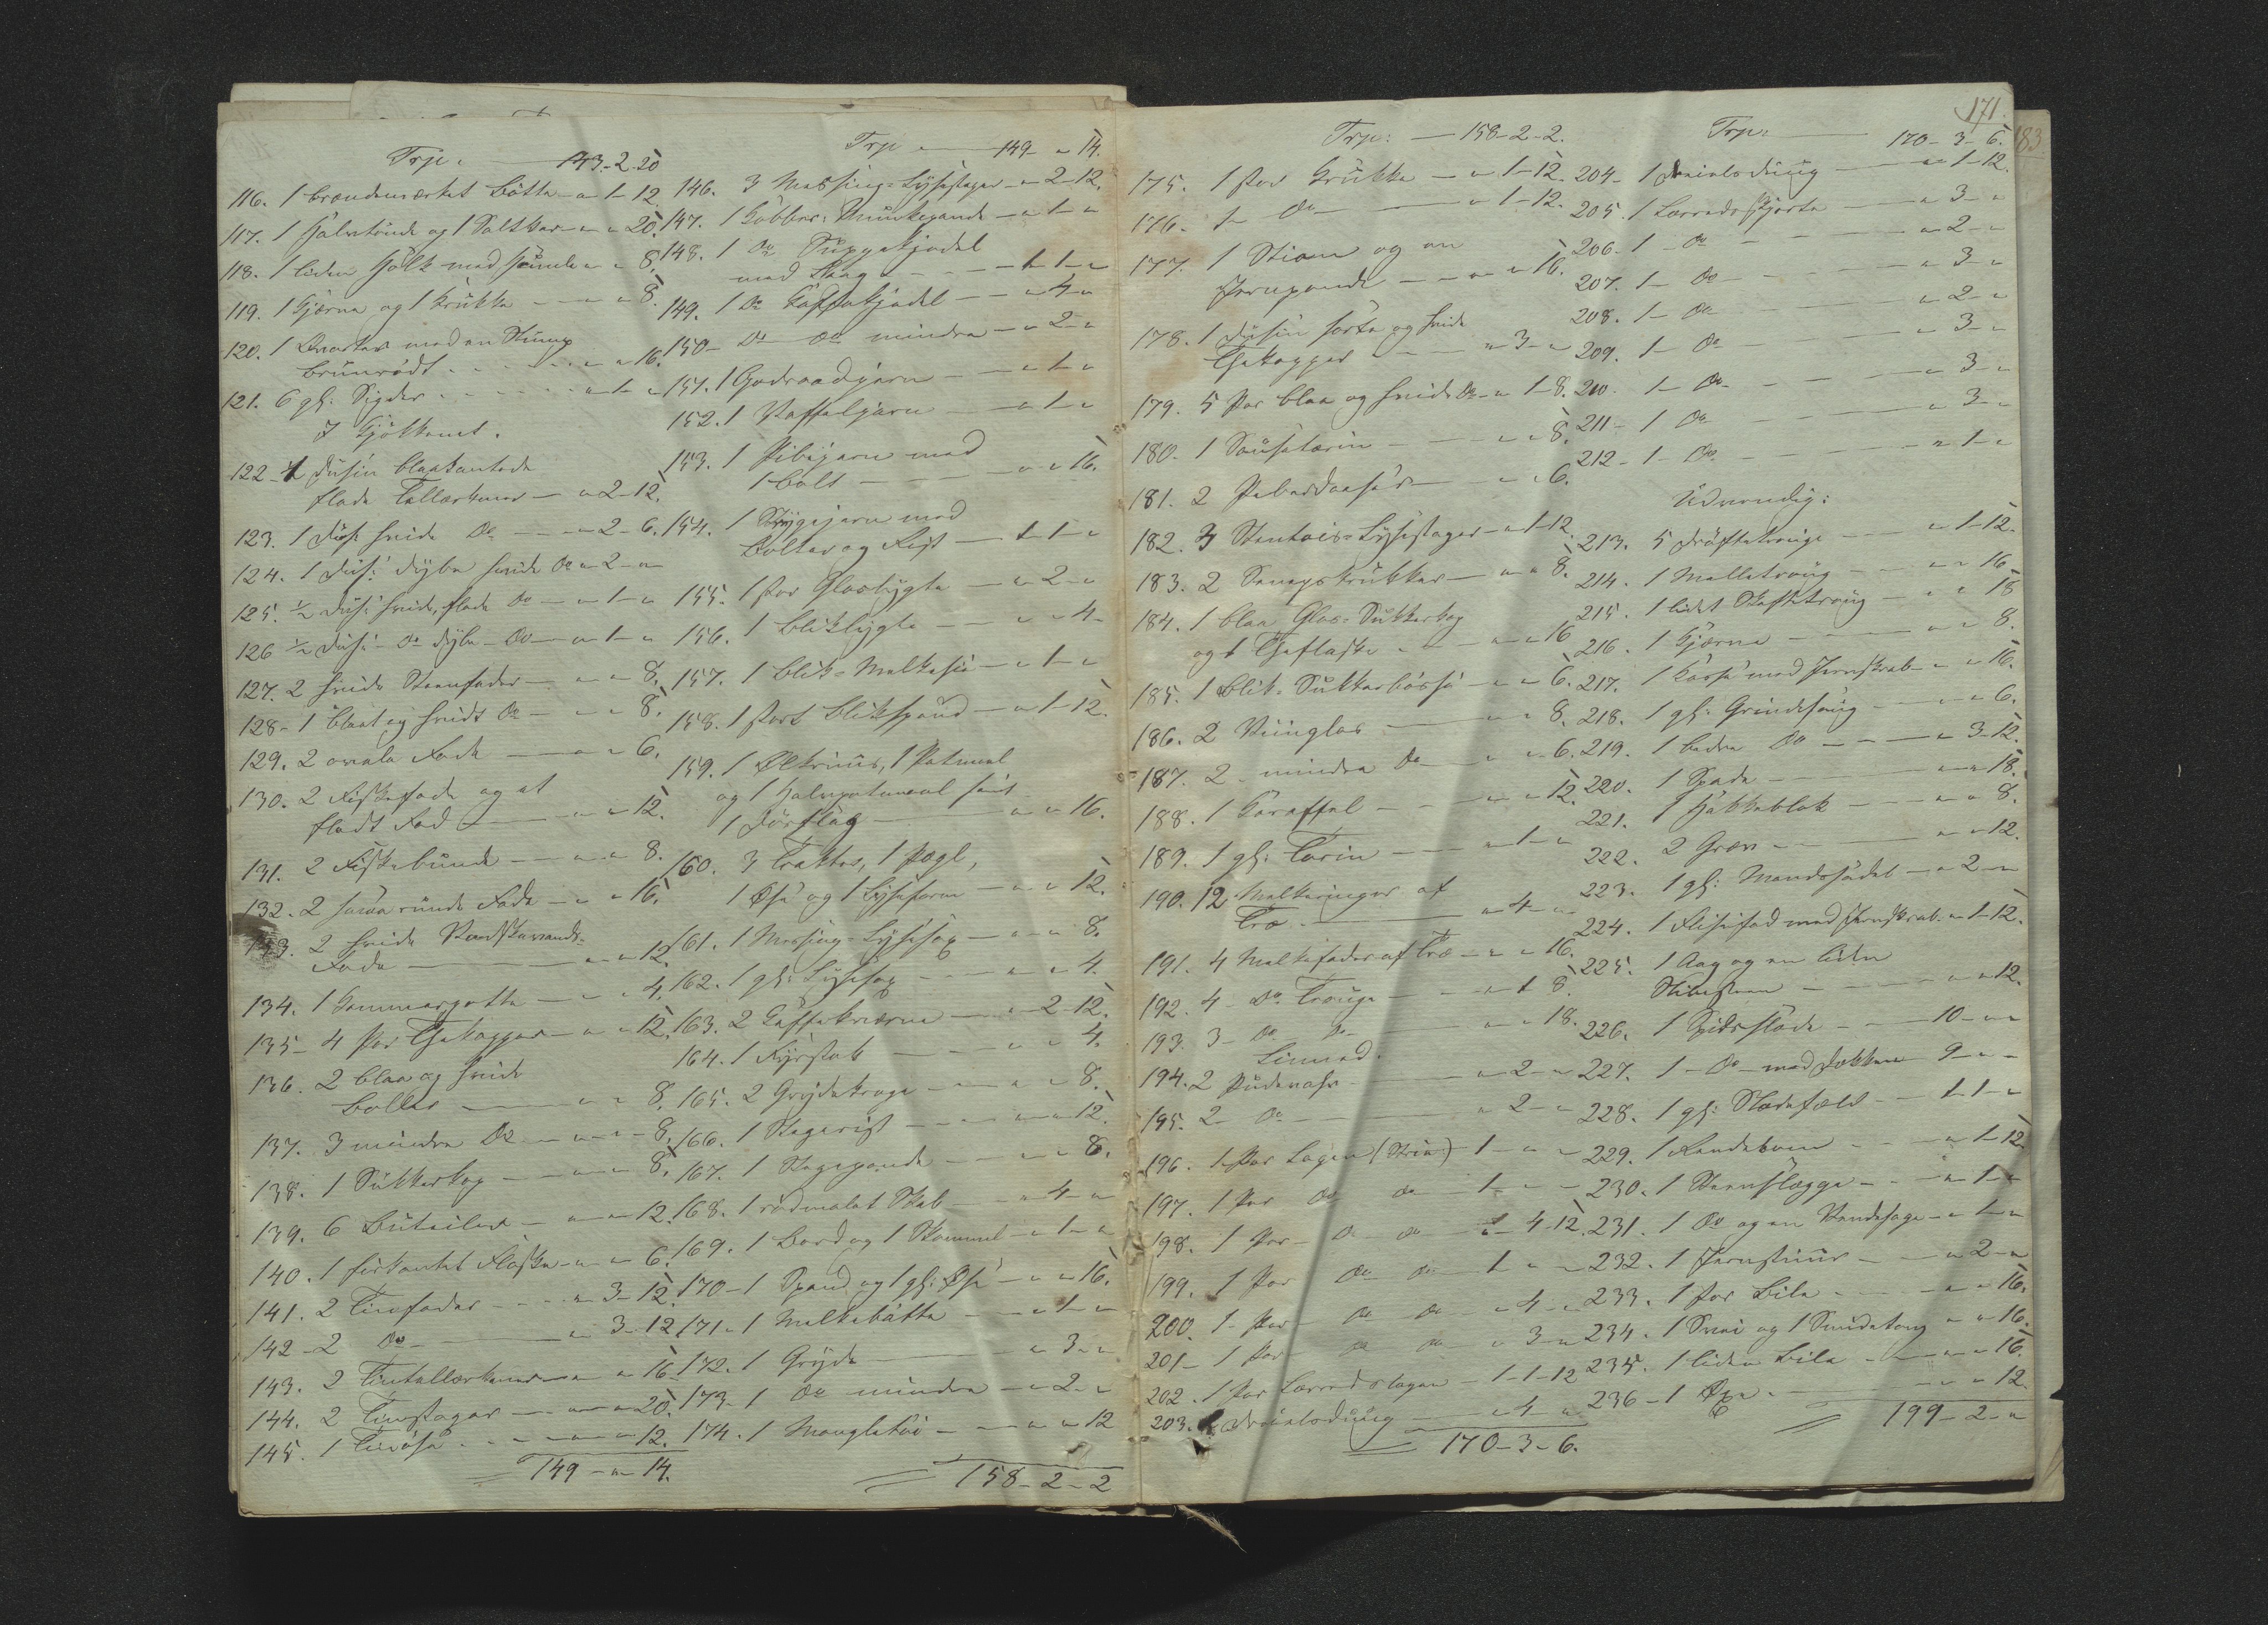 Trp. — 143-2-20
116. 1 brændemærket Bøtte - " 1-12.
117. 1 Halvtønde og 1 Saltkar - " - 20.
118. 1 liden Hølk med Humle " - 8.
119. 1 Kjerne og 1 Krukke - " - 8.
120. 1 Qvarter med en Slump
brunrødt . . . " - 16.
121. 6 gl: Sigder . . . " 1 - "
I Kjøkkenet.
122. 1 Dusin blaakantede
flade Tallerkener - " 2-12.
123. 1 Dus: hvide Do - " 2-6.
124. 1 Dus: dybe hvide Do " 2 - "
125. ½ Dus: hvide, flade Do - " 1 - "
126. ½ Dus: - Do dybe - Do - " 1 - "
127. 2 hvide Steenfade - " - 8.
128. 1 blaat og hvidt Do - " - 8.
129. 2 ovale Fade - " - 6.
130. 2 Fiskefade og et
fladt Fad - " - 12.
131. 2 Fiskebunde - " - 8.
132. 2 smaa runde Fade - " - 16.
133. 2 hvide Vadskevands-
Fade - " - 12.
134. 1 Kammerpotte - " - 4.
135. 4 Par Thekopper - " - 12.
136. 2 blaa og hvide
Boller - " - 8.
137. 3 mindre Do - " - 8.
138. 1 Sukkerkop - " - 8.
139. 6 Buteiler - " - 12.
140. 1 firkantet Flaske - " - 6.
141. 2 Tinfade - " 3-12.
142. 2 Do - " 3-12.
143. 2 Tintallerkener - " - 16.
144. 2 Tinstager - " - 20.
145. 1 Tinøse - " - 12.
149 - " - 14.
Trp — 149 - " 14.
146. 3 Messing-Lysestager - " 2-12.
147. 1 Kobber-Munkepande - " 1 - "
148. 1 Do Suppekjedel
med Laag - 1 1 - "
149. 1 Do Kaffekjedel - " 4 - "
150. Do Do mindre - " 2 - "
151. 1 Goderaadjern - " 1 - "
152. 1 Vaffeljern - " 1 - "
153. 1 Pibejern med
1 Bolt - " - 16.
154. 1 Strygejern med
Bolter og Rist - 1 1 - "
155. 1 stor Glaslygte - " 2 - "
156. 1 Bliklygte - " - 4 -
157. 1 Blik-Melkesie - " 1 - "
158. 1 stort Blikspand - " 1-12.
159. 1 Øltruus, 1 Potmaal
og 1 Halvpotmaal samt
1 Dørslag - " - 16.
160. 3 Trakter, 1 Pægl,
1 Øse og 1 Lyseform - " - 12.
161. 1 Messing-Lysesax - " - 8.
162. 1 gl: Lysesax - " - 4.
163. 2 Kaffekværne - " 2-12.
164. 1 Fyrstok - " - 4.
165. 2 Grydekroge - " - 8.
166. 1 Stegerist - " - 12.
167. 1 Stegepande - " - 8.
168. 1 rødmalet Skab - " 4 - "
169. 1 Bord og 1 Skammel - " 1 - "
170. 1 Spand og 1 gl: Øse - " - 16.
171. 1 Melkebøtte - " 1 - "
172. 1 Gryde - " 3 - "
173. 1 Do mindre - " 2 - "
174. 1 Mangletøi - " - 12
158-2-2
171.
183
Trp: — 158-2-2.
175. 1 stor Krukke - " 1-12.
176. 1 Do - " 1-12.
177. 1 og en
Jernpande - " - 16.
178. 1 Dusin sorte og hvide
Thekopper - " 3 - "
179. 5 Par blaa og hvide Do - " 1-8.
180. 1 Sauseterin - " - 8.
181. 2 Peberdaaser - " - 6.
182. 3 Stentøis-Lysestager - " 1-12.
183. 2 Senepskrukker - " - 8.
184. 1 blaa Glas-Sukkerkop
og 1 Theflaske - " - 16
185. 1 Blik-Sukkerbøsse - " - 6.
186. 2 Viinglas - " - 8.
187. 2 - mindre Do - " - 6.
188. 1 Karaffel - " - 12.
189. 1 gl: Terin - " 1 - "
190. 12 Melkeringer af
Træ - " 4 - "
191. 4 Melkefade af Træ - " - 16.
192. 4 - Do Trouge - " 1 8.
193. 3 - Do Do - " - 18.
Linned.
194. 2 Pudevahr - " 2 - "
195. 2 Do - " 2 - "
196. 1 Par Lagen (Strie) - 1 - " - "
197. 1 Par Do Do 1 - " - "
198. 1 Par Do Do - " - 4-12
199. 1 Par Do Do 1 - " - "
200. 1 Par - Do Do - " 4 - "
201. 1 Par - Do Do - " 3 - "
202. 1 Par Lærredslagen - 1-1-12
203. 1 Dreielsdug - " 4 "
170-3-6.
Trp: — 170-3-6.
204. 1 Dreielsdug - " 1-12.
205. 1 Lærredsskjorte - " 3 - "
206. 1 - Do - " 2 - "
207. 1 - Do - " 3 - "
208. 1 - Do - " 2 - "
209. 1 - Do - " 3 - "
210. 1 - Do - " 3 - "
211. 1 Do - " 3 - "
212. 1 - Do - " 1 - "
Udvendig:
213. 5 Drøftetruge - " 1-12.
214. 1 Melletroug - " - 16.
215. 1 lidet Skaftetroug - " - 18
216. 1 Kjærne - " - 8.
217. 1 Karse med Jernskrab - " - 16.
218. 1 gl: Grindesaug - " - 6.
219. 1 bedre Do - " 3-12.
220. 1 Spade - " - 18.
221. 1 Hakkeblok - " - 8.
222. 2 Grev - " - 12.
223. 1 gl: Mandssadel - " 2 - "
224. 1 Flisefad med Jernskrab. " 1-12.
225. 1 Aag og en liden
Slibesteen - " - 12.
226. 1 Spidsslæde - 10 - " - "
227. 1 - Do - med Dækken 9 - " - "
228. 1 gl: Slædefæld - 1-1 - "
229. 1 Rendebom - " 1-12
230. 1 Steenslægge - " 1 - "
231. 1 Do og en Vendesag - " 1 - "
232. 1 Jernstuur - " 2 - "
233. 1 stor Bile - " - 16.
234. 1 Svei og 1 Smidetang - " - 16.
235. 1 liden Bile - " - 16.
236. 1 Øxe - " - 12.
199-2 - "